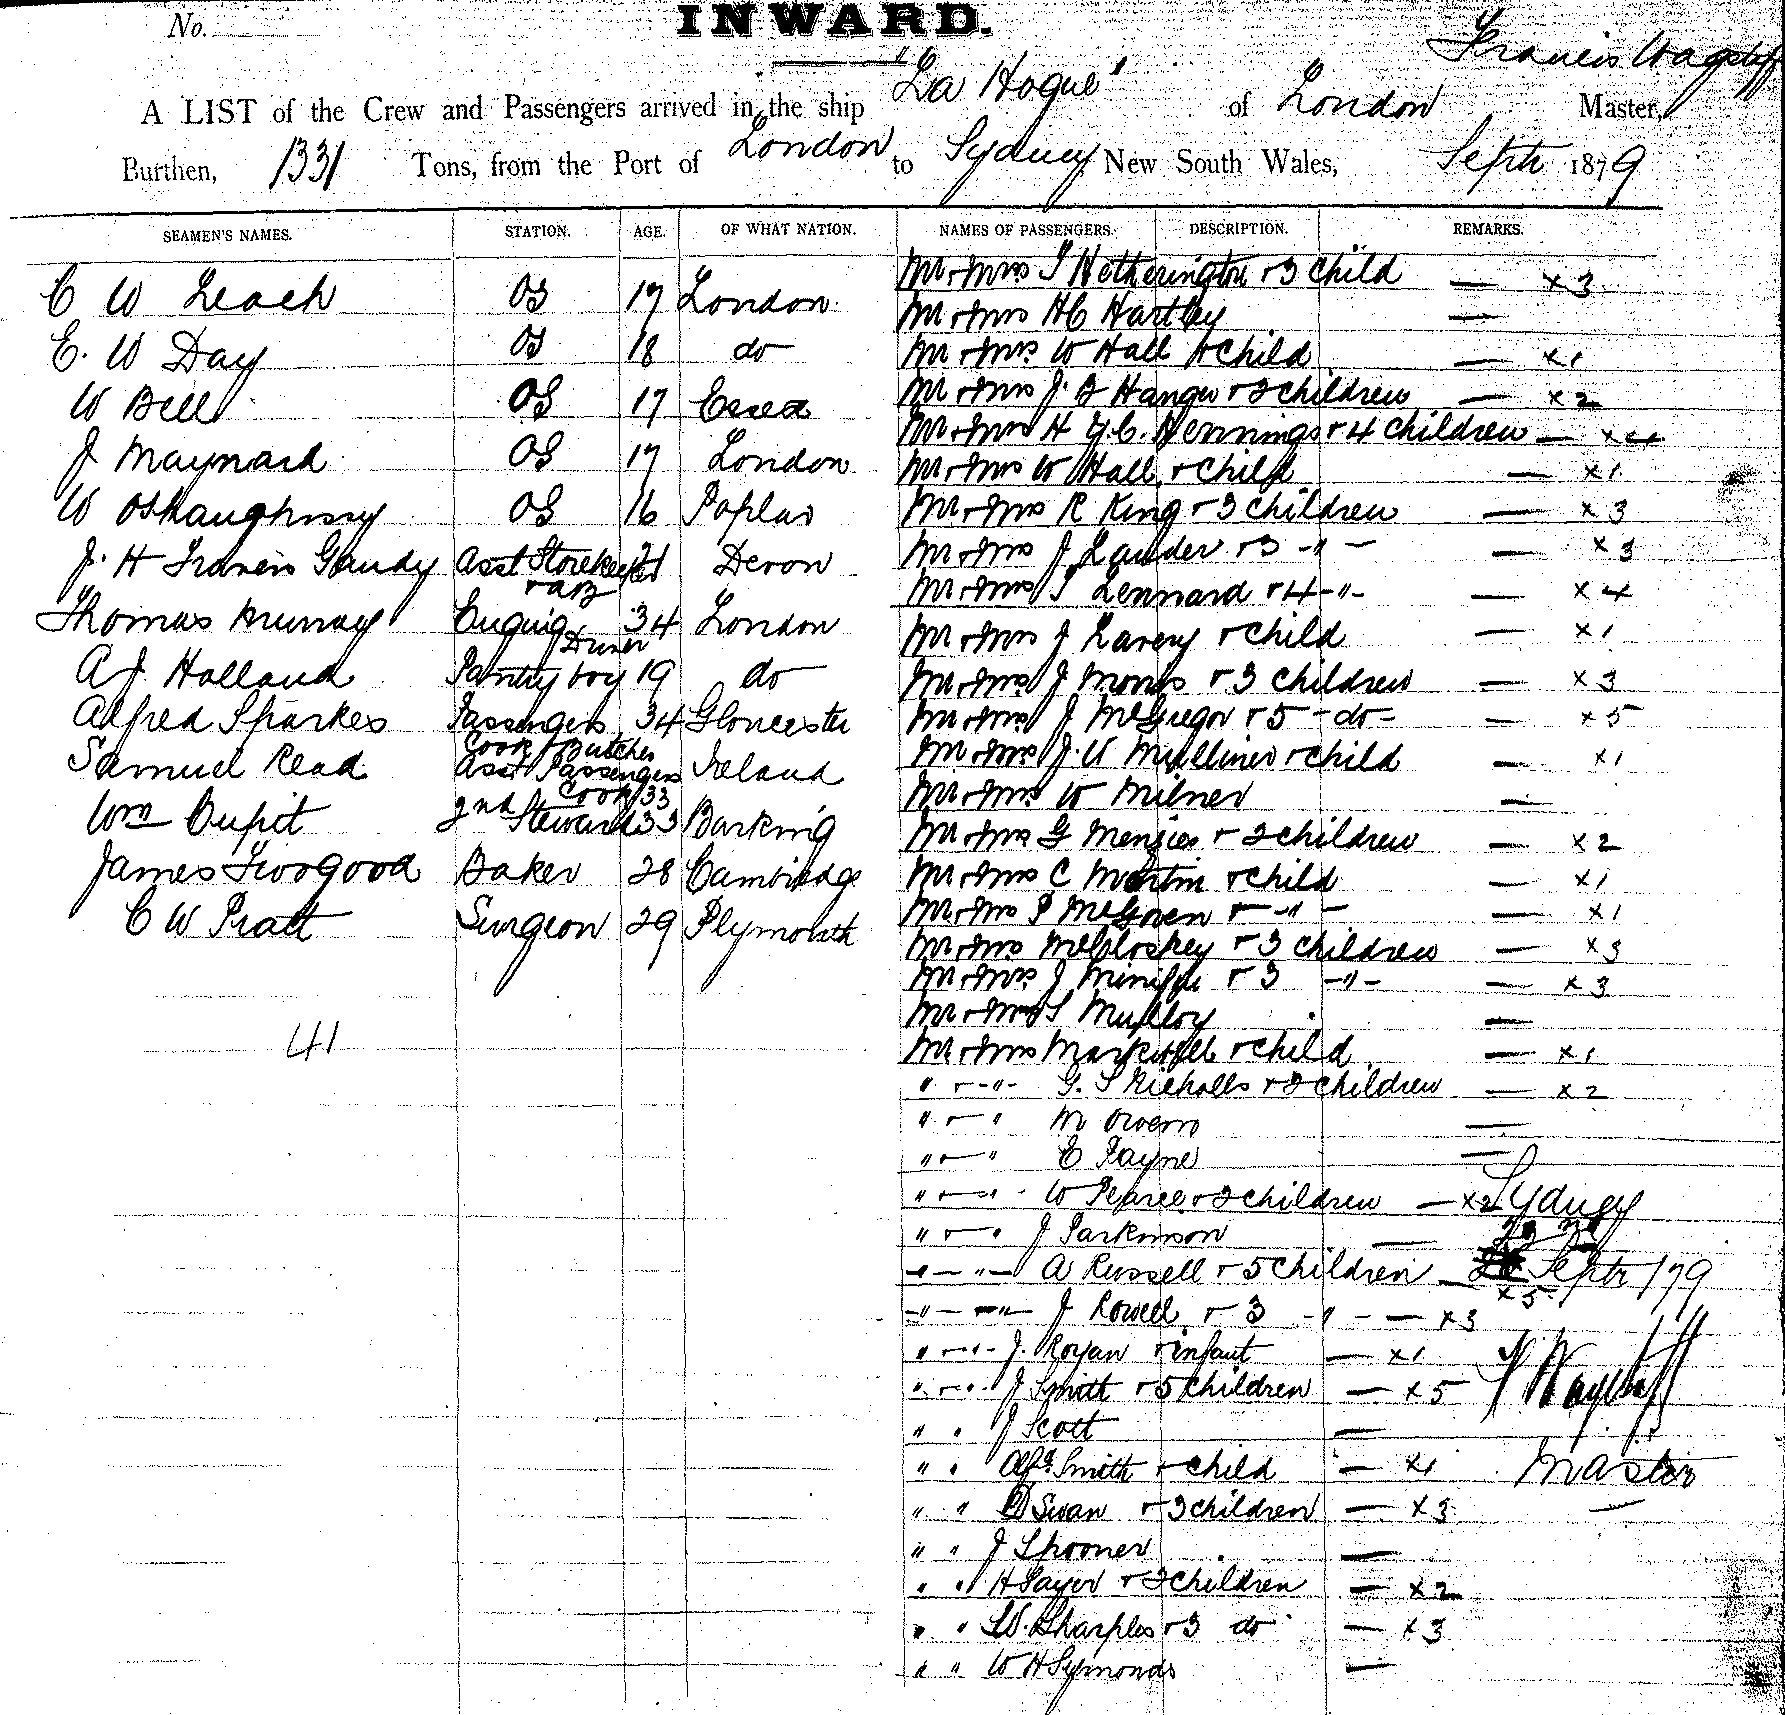 No.
INWARD.
A LIST of the Crew and Passengers arrived in the ship "La Hogue" of London Francis Wagstaff Master,
Burthen, 1331 Tons, from the Port of London to Sydney New South Wales, Septr 1879
SEAMEN'S NAMES. STATION. AGE. OF WHAT NATION. NAMES OF PASSENGERS. DESCRIPTION. REMARKS.
C W Leach OS 17 London
E. W Day OS 18 do
W Bell OS 17 Essex
J Maynard OS 17 London
W OShaughnssy OS 16 Poplar
J. H Francis Gandy Asst Storekeeper & AB 21 Devon
Thomas Murray Engine Driver 34 London
A J Holland Pantry boy 19 do
Alfred Sparkes Passengers Cook & Butcher 34 Gloucester
Samuel Read Asst Passengers Cook 33 Ireland
Wm Cupit 2nd Steward 33 Barking
James Twogood Baker 28 Cambridge
C W Pratt Surgeon 29 Plymouth
41
Mr & Mrs T Hetherington & 3 Child — x 3
Mr & Mrs HC Hartley —
Mr & Mrs W Hall & Child — x 1
Mr & Mrs J. Hanger & 2 children — x 2
Mr & Mrs H Y.C. Hennings & 4 children — x 4
Mr & Mrs W Hall & child — x 1
Mr & Mrs R King & 3 children — x 3
Mr & Mrs J Lander & 3 -"- — x 3
Mr & Mrs T Lennard & 4 -"- — x 4
Mr & Mrs J Lavery & child — x 1
Mr & Mrs J Morris & 3 children — x 3
Mr & Mrs J McGregor & 5 -do- — x 5
Mr & Mrs J. W Mulliner & child — x 1
Mr & Mrs W Milner —
Mr & Mrs G Menzies & 2 children — x 2
Mr & Mrs C Martin & child — x 1
Mr & Mrs P & -"- — x 1
Mr & Mrs McCloskey & 3 children — x 3
Mr & Mrs J & 3 -"- — x 3
Mr & Mrs S Mulloy —
Mr & Mrs & child — x 1
" & -"- G. S Nicholls & 2 children — x 2
" & " M Owens —
" & " E Payne —
" & " W Pearce & 2 children — x 2
" & " J Parkinson —
" — " — A Russell & 5 children — x 5
" — " — J Rowell & 3 " — x 3
" & " J. Royan & infant — x 1
" & " J Smith & 5 children — x 5
" " J Scott —
" " Alfd. Smith & child — x 1
" " D Swan & 3 children — x 3
" " J Spooner —
" " H Sayer & 2 children — x 2
" " W. Sharples & 3 do — x 3
" " W H Symonds —
Sydney
Septr /79
F Wagstaff
Master